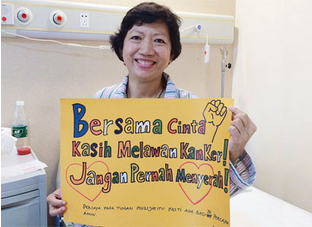 Bersama Cinta
Kasih Melawan Kanker!
Jangan Pernah Menyerah!
PERCAYA YANG TUHAN MENYERTAI PASTI ADA
AMIN